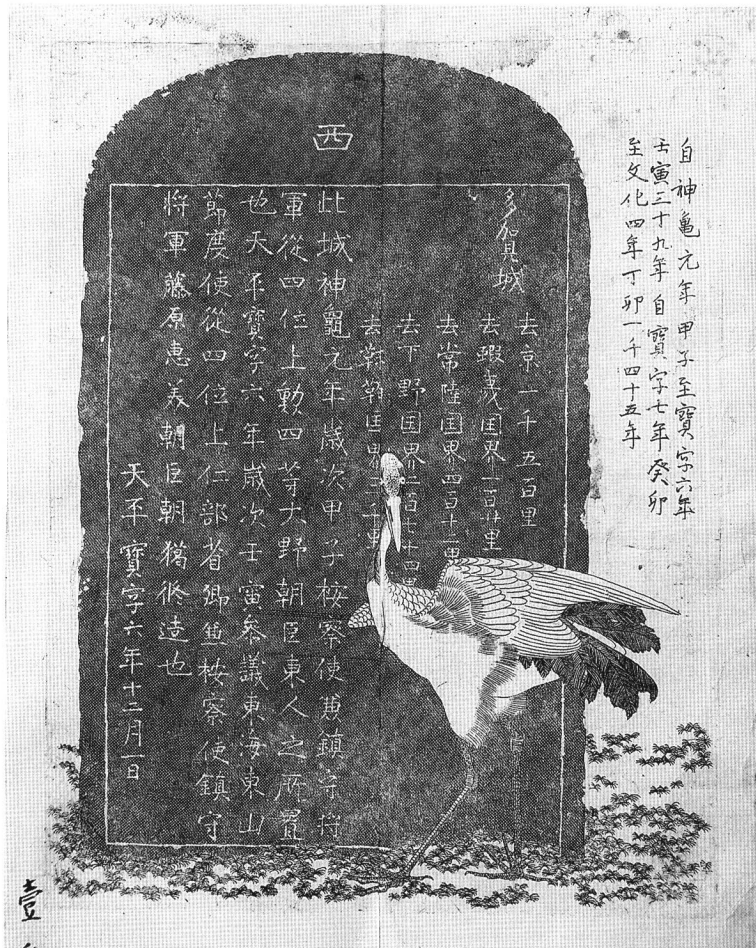 自神龜元年甲子至寶字六年
壬寅三十九年自寶字七年癸卯
至文化四年丁卯一千四十五年
西
多賀城
去京一千五百里
去蝦夷国界一百廿里
去常陸国界四百十二里
去下野国界二百七十四里
去靺鞨国界三千里
此城神龜元年歳次甲子按察使兼鎮守将
軍從四位上勲四等大野朝臣東人之所置
也天平寶字六年歳次壬寅参議東海東山
節度使從四位上仁部省卿兼按察使鎮守
将軍藤原惠美朝臣朝獦修造也
天平寶字六年十二月一日
壹